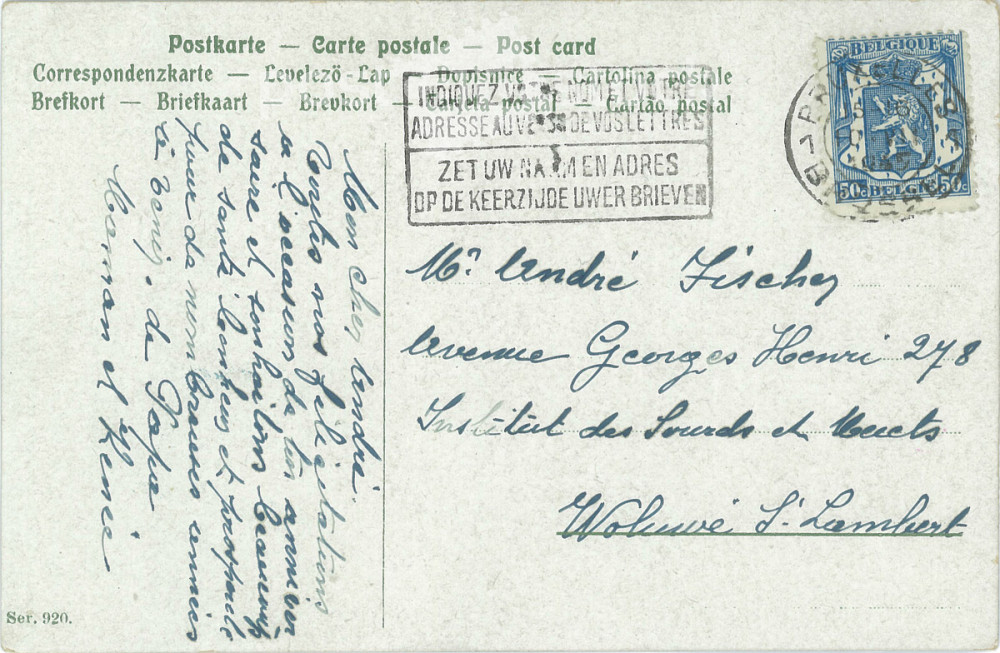 Postkarte — Carte postale — Post card
Correspondenzkarte — Levelező-Lap — Dopisnice — Cartolina postale
Brefkort — Briefkaart — Brevkort — Cartela postal — Cartão postal
INDIQUEZ VOTRE NOM ET VOTRE
ADRESSE AU VERSO DE VOS LETTRES
ZET UW NAAM EN ADRES
OP DE KEERZIJDE UWER BRIEVEN
BELGIQUE
50c BELGIE 50c
Mon cher André.
Reçois nos félicitations
a l'occasion de ton anniver
saire et souhaitons beaucoup
de santé bonheur et prospérité
pour de nombreuses années
à venir. de Papa
Maman et Renée
Mr. André Fischer
Avenue Georges Henri 278
Institut des Sourds et Muets
Woluwé St. Lambert
Ser. 920.